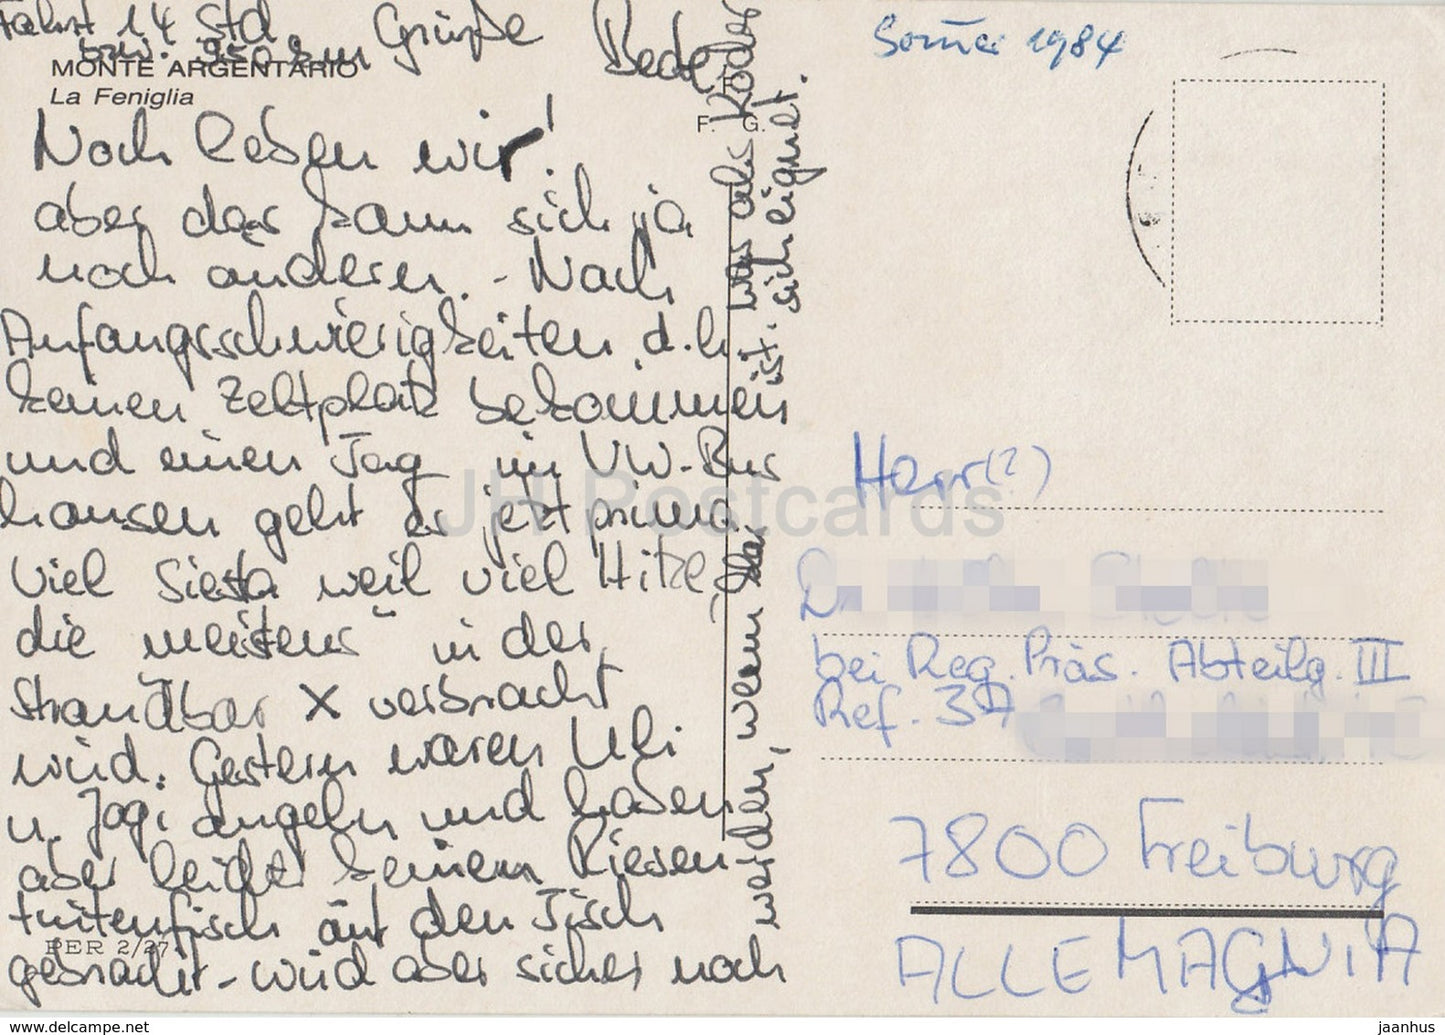 Fahrt 14 Std
bzw. 950 km Grüße
MONTE ARGENTARIO
La Feniglia
F. G.
Noch leben wir!
aber das kann sich ja
noch ändern. - Nach
Anfangsschwierigkeiten, d.h.
keinen Zeltplatz bekommen
und einen Tag im VW-Bus
hausen geht es jetzt prima
Viel Siesta weil viel Hitze,
die meistens in der
Strandbar X verbracht
wird. Gestern waren Uli
u. Jogi angeln und haben
aber leider keinen Riesen
tintenfisch auf den Tisch
gebracht - wird aber sicher noch
BER 2/27
werden, wenn sie was als Köder
ist. sich eignet.
Sommer 1984
Herr(?)
bei Reg. Präs. Abteilg. III
Ref. 37
7800 Freiburg
ALLEMAGNIA
JH Postcards
www.delcampe.net
jaanhus